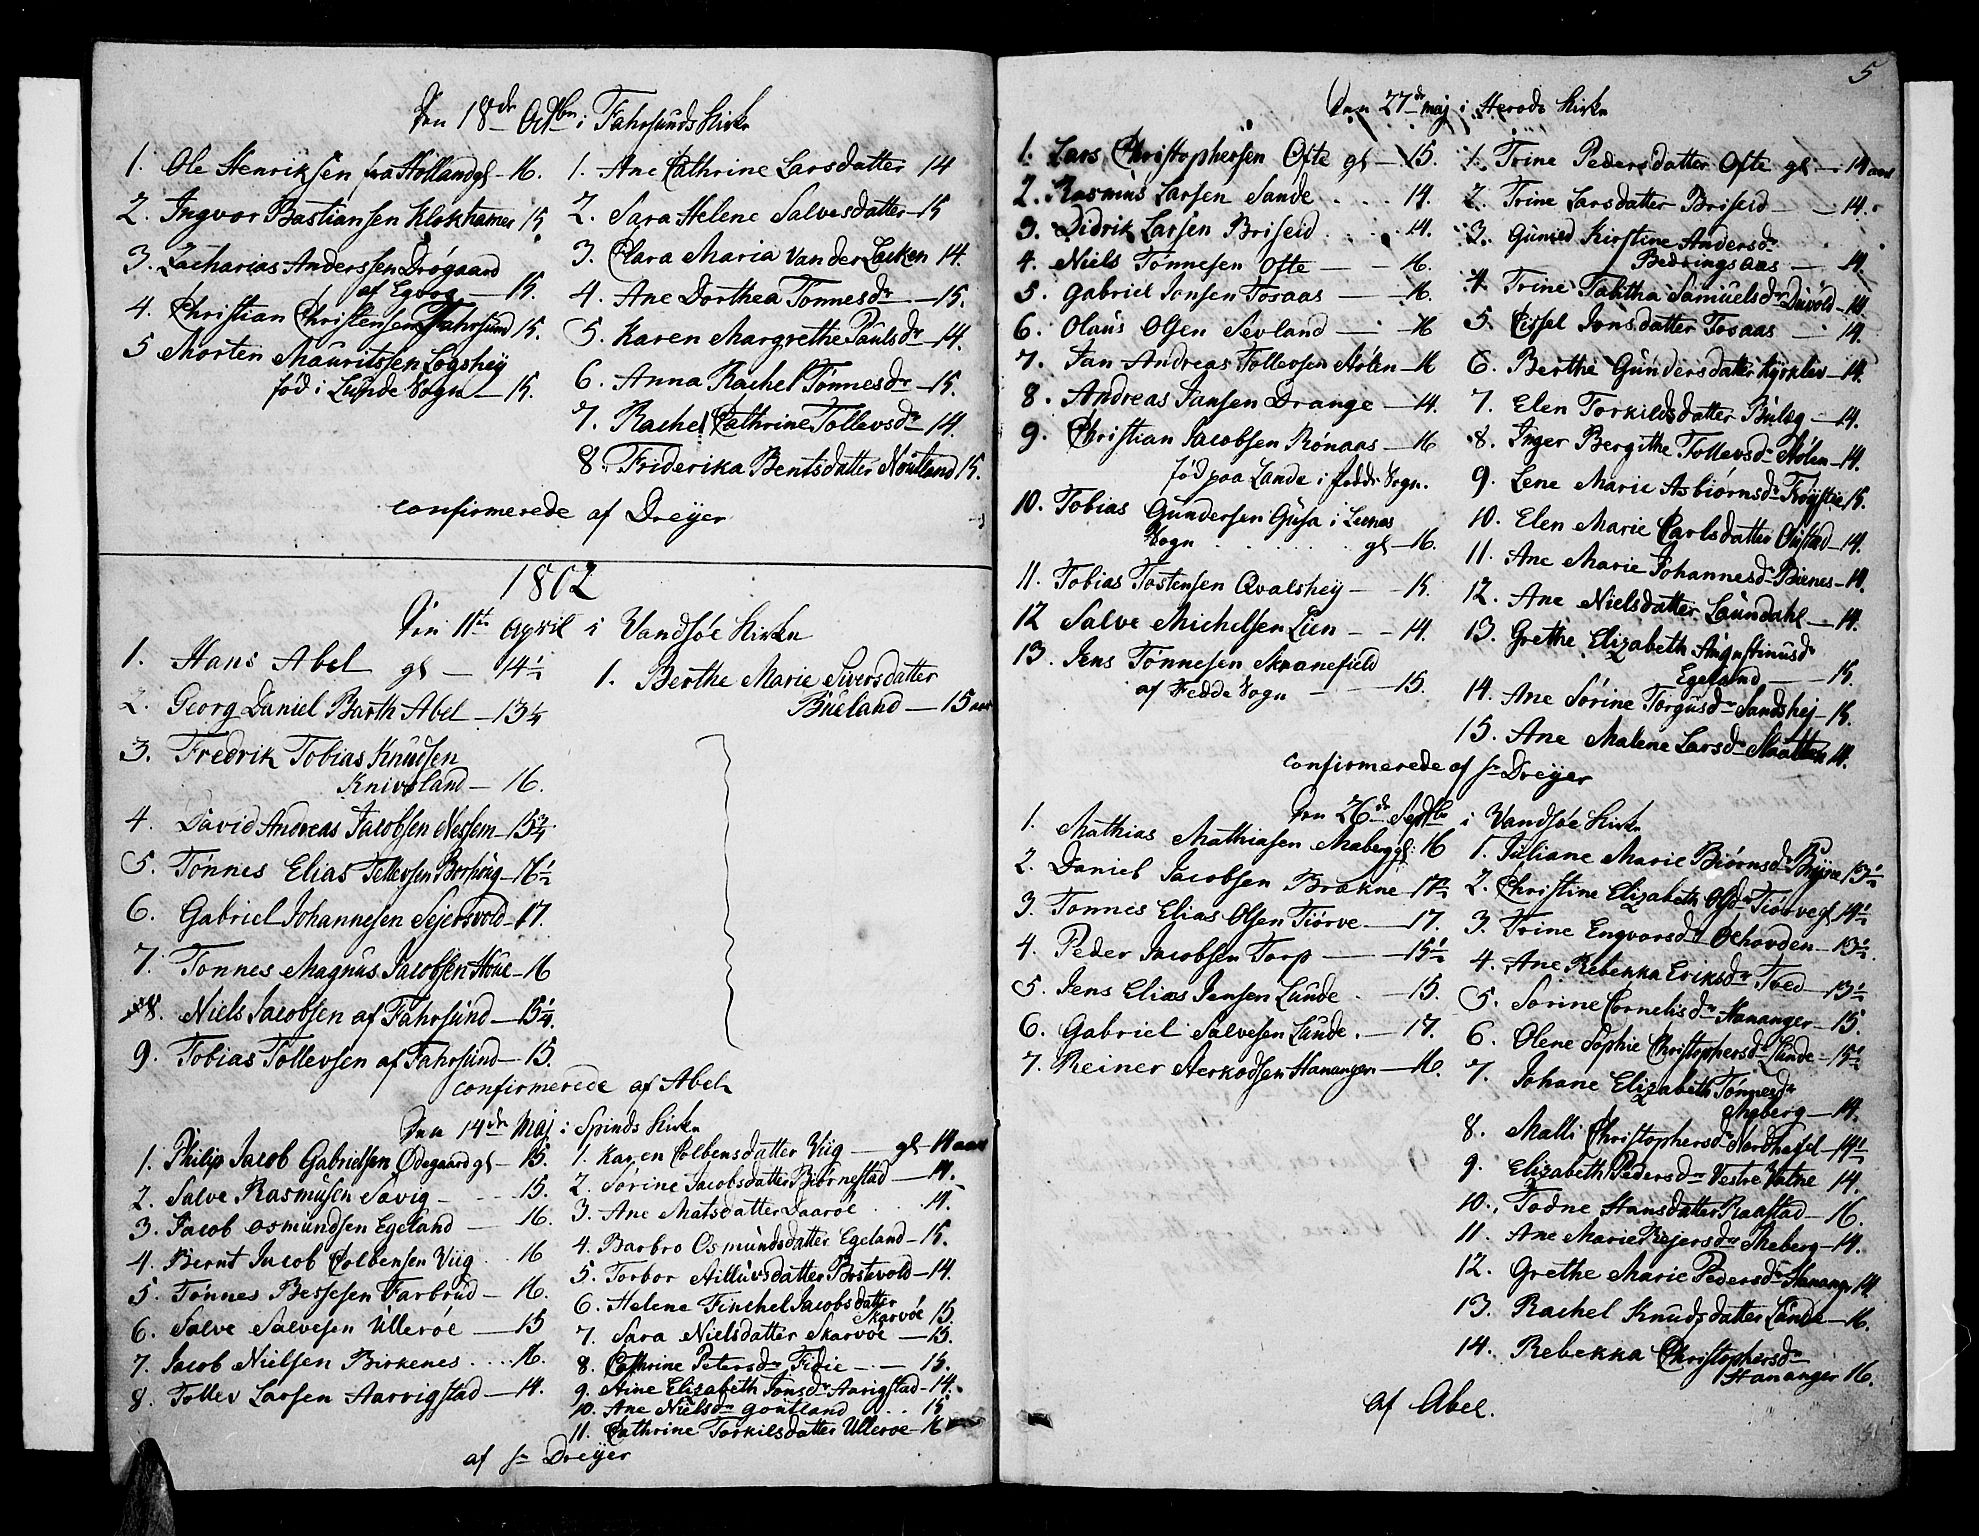 Den 18de Octbr i Fahrsunds Kirke
1. Ole Henriksen fra Holland gl – 16.
2. Ingvor Bastiansen Klokhamer 15
3. Zacharias Anderssen Drøgaard
af Egvog – 15.
4. Christian Christensen Fahrsund 15.
5 Morten Mauritssen Logshey
fød i Lunde Sogn – 15.
1. Ane Cathrine Larsdatter 14
2. Sara Helene Salvesdatter – 15
3. Clara Maria van der Lacken 14.
4. Ane Dorthea Tønnesdr – 15.
5. Karen Margrethe Paulsdr – 14.
6. Anna Rachel Tønnesdr – 15.
7. Rachel Cathrine Tollevsdr 14.
8. Friderika Bentsdatter Noutland 15.
confirmerede af Dreÿer
1802
Den 11te April i Vandsøe Kirke
1. Hans Abel gl – 14½
2. Georg Daniel Barth Abel – 13¼
3. Fredrik Tobias Knudsen
Knivsland – 16.
4. David Andreas Jacobsen Nessem – 15¾
5. Tønnes Elias Tellevsen Borhoug – 16½
6. Gabriel Johannesen Sejersvold – 17.
7. Tønnes Magnus Jacobsen Houe – 16
8. Niels Jacobsen af Fahrsund – 15¼.
9. Tobias Tollevsen af Fahrsund – 15.
1. Berthe Marie Siversdatter
Büeland – 15 aar
confirmerede af Abel
Den 14de Maj i Spinds Kirke
1. Philip Jacob Gabrielsen Ødegaard gl – 15.
2. Salve Rasmusen Savig – 15.
3. Jacob Osmundsen Egeland – 16.
4. Bernt Jacob Colbensen Viig 16
5. Tønnes Bessesen Farbrud – 16.
6. Salve Salvesen Ullerøe – 15
7. Jacob Nielsen Birkenes . . . 16.
8. Tollev Larsen Aarrigstad – 14.
1. Karen Colbensdatter Viig – gl – 14 aar
2. Sørine Jacobsdatter Biørnestad – 14.
3. Ane Matsdatter Daarøe . . 14.
4. Barbro Osmundsdatter Egeland – 15.
5. Torbor Aillüvsdatter Bostvold – 14.
6. Helene Finchel Jacobsdatter
Skarvöe 15.
7. Sara Nielsdatter Skarvöe – 15.
8. Cathrine Petersdr Fidie – – 15.
9. Aine Elizabeth Tonsdr Aarigstad – 14.
10. Ane Nielsdr Goutland . . 15
11. Cathrine Torkilsdatter Ulleroe – 16
af Hr Dreÿer
5
Den 27de Maj i Herads Kirke
1. Lars Christophersen Ofte gl – 15.
2. Rasmus Larsen Sande . . . . 14.
3. Didrik Larsen Briseid . . . . 14.
4. Niels Tønnesen Ofte – – 16.
5. Gabriel Jonsen Tosaas – – 16.
6. Olaus Olsen Sevland – – 16
7. Jan Andreas Tollevsen Hølen – 16
8. Andreas Jansen Drange – 14.
9. Christian Jacobsen Rønaas – 16
fød paa Lande i Fedde Sogn.
10. Tobias Gundersen Gusa i Lunes
Sogn . . . . . . . gl – 16.
11. Tobias Tostensen Qvalshey – – 15.
12 Salve Michelsen Lien – – 14.
13. Jens Tønnesen Skranefield
af Fedde Sogn – – 15.
1. Trine Pedersdatter Ofte gl – 14 aar
2. Trine Larsdatter Briseid – – 14.
3. Gunild Kirstine Andersdr
Bedringsaas – 14.
4. Trine Tabitha Samuelsdr Duvold – 14.
5. Cissel Jonsdatter Tosaas – 14.
6. Berthe Gundersdatter Kyrklev – 14.
7. Elen Torkildsdatter Buleg – 14.
8. Inger Bergithe Tollevsdr Hølen – 14.
9. Lene Marie Asbiørnsdr Frøystie 15.
10. Elen Marie Carlsdatter Omstad – 14.
11. Ane Marie Johannesdr Bienes – 14.
12. Ane Nielsdatter Laundahl – 14.
13. Grethe Elizabeth Augustinusdr
Egeland – 15.
14. Ane Sørine Torgusdr Sandshej – 15.
15. Ane Malene Larsdr 14.
confirmerede af Hr Dreÿer
Den 26de Septbr i Vandsøe Kirke
1. Mathias Mathiasen Maberg gl: 16
2. Daniel Jacobsen Brakne – 17½
3. Tønnes Elias Olsen Tiørve – 17.
4. Peder Jacobsen Torp – 15½
5. Jens Elias Jensen Lunde . – 15.
6. Gabriel Salvesen Lunde . – 17.
7. Reiner Aerkodsen Hananger – 16.
1. Juliane Marie Biørnsdr Bryne 13½
2. Christine Elizabeth Olsdr Tiørve gl 14½
3. Trine Engvorsdr Øehovden – 13½.
4. Ane Rebekka Eriksdr Tved – 13½
5. Sørine Cornelisdr Hananger – 15.
6. Olene Sophie Christophersdr Lunde – 15½
7. Johane Elizabeth Tønnesdr
Skeberg – 14.
8. Malli Christophersdr Nordhassel – 14½
9. Elizabeth Pedersdr Vestre Vatne 14.
10. Todne Hansdatter Raastad – 16.
11. Ane Marie Rejersdr Skeberg – 14.
12. Grethe Marie Pedersdr Hanange 14.
13. Rachel Knudsdatter Lunde – 16.
14. Rebekka Christophersdr
Hananger 16.
af Abel.